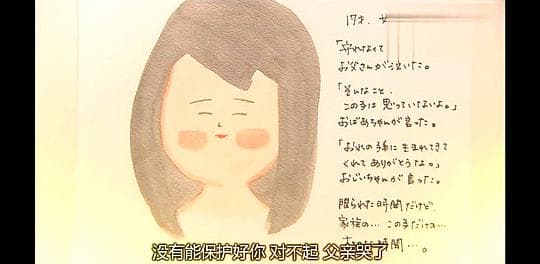 17才、女
「守れなくて
お父さんが泣いた。
「そんなこと、
この子は思っていないよ。」
おばあちゃんが言った。
「おれの孫に生まれてきて
くれてありがとうな。」
おじいちゃんが言った。
限られた時間だけど、
家族の…この子だけの…
時間…。
没有能保护好你 对不起 父亲哭了